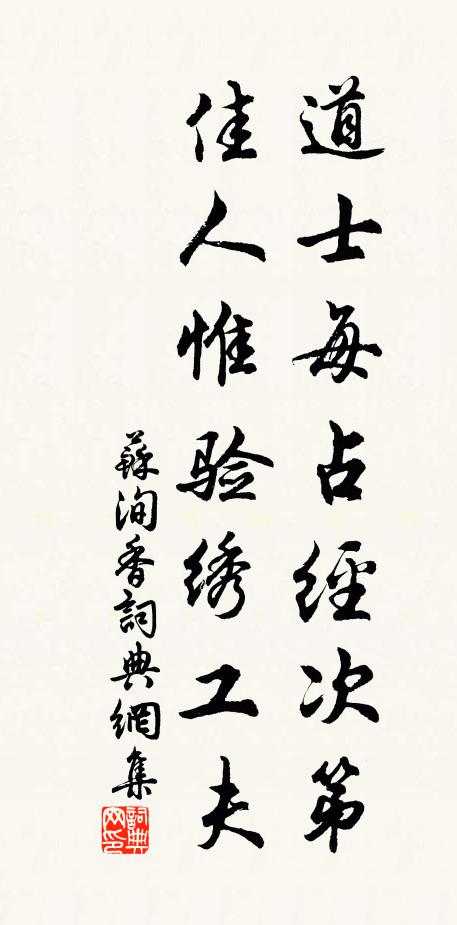 道士每占經次第
佳人惟验绣工夫
蘇洵香詞典網集
詞典网印